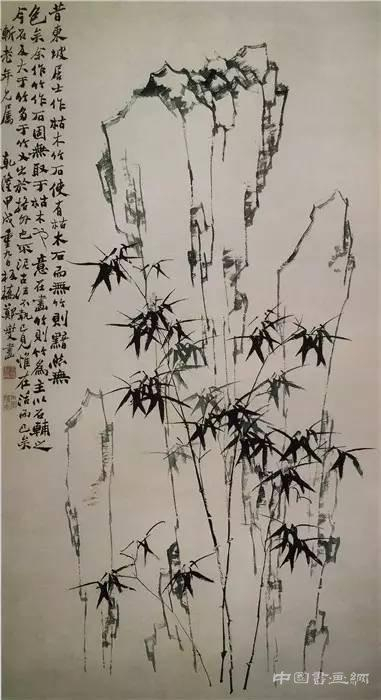 昔東坡居士作枯木竹石使有枯木石而無竹則黯然無
色矣余作竹作石固無取于枯木也意在畫竹則竹為主以石輔之
今石反大于竹多于竹又出於格外也不泥古法不執己見惟在活而已矣
新老年兄屬 乾隆甲戌重九日板橋鄭燮畫
中国書画網